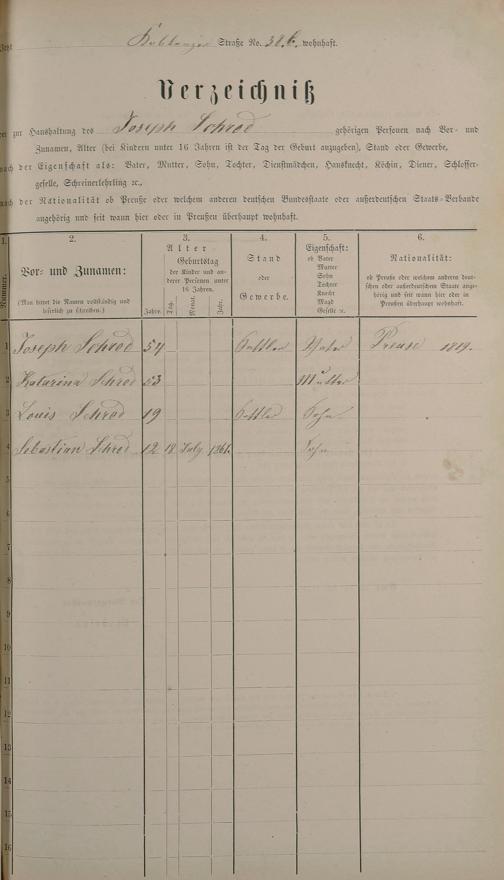 Koblenzer Straße No. 38.b. wohnhaft.
Verzeichniß
zur Haushaltung des Joseph Schrod gehörigen Personen nach Vor- und
Zunamen, Alter (bei Kindern unter 16 Jahren ist der Tag der Geburt anzugeben), Stand oder Gewerbe,
nach der Eigenschaft als: Vater, Mutter, Sohn, Tochter, Dienstmädchen, Hausknecht, Köchin, Diener, Schlosser-
geselle, Schreinerlehrling ꝛc.,
nach der Nationalität ob Preuße oder welchem anderen deutschen Bundesstaate oder außerdeutschen Staats-Verbande
angehörig und seit wann hier oder in Preußen überhaupt wohnhaft.
1. 2. 3. 4. 5. 6.
Nummer.
Vor- und Zunamen:
(Man bittet die Namen vollständig und
leserlich zu schreiben.)
Alter
Geburtstag
der Kinder und an-
derer Personen unter
16 Jahren.
Jahre. Tag. Monat. Jahr.
Stand
oder
Gewerbe.
Eigenschaft:
ob Vater
Mutter
Sohn
Tochter
Knecht
Magd
Geselle ꝛc.
Nationalität:
ob Preuße oder welchem anderen deut-
schen oder außerdeutschen Staate ange-
hörig und seit wann hier oder in
Preußen überhaupt wohnhaft.
1 Joseph Schrod 54 Sattler Vater Preuse 1819.
2 Katarina Schrod 53 Mutter
3 Louis Schrod 19 Sattler Sohn
4 Sebastian Schrod 12 18 July 1861. Sohn
5
6
7
8
9
10
11
12
13
14
15
16